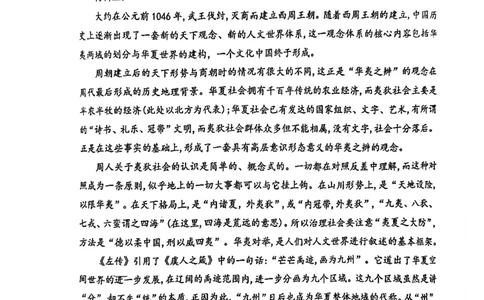 大约在公元前 1046 年,武王伐纣,灭商而建立西周王朝。随着西周王朝的建立,中国历
史上逐渐出现了一套新的天下观念、新的人文世界体系,这一观念体系的核心内容包括华
夷两域的划分与华夏世界的建构,一个文化中国终于形成。
周朝建立后的天下形势与商朝时的情况有很大的不同,这正是“华夷之辨”的观念在
周代最后形成的历史地理背景。华夏社会拥有千百年传统的农业经济,而夷狄社会主要是
半农半牧的经济(此处以北方为代表);华夏社会已有发达的国家组织、文字、艺术,有所谓
的“诗书、礼乐、冠带”文明,而夷狄社会群体众多但不能相属,没有文字,社会十分落后。
正是在这些事实的基础上,形成了一套具有高层意识形态意义的华夷之辨的观念。
周人关于夷狄社会的认识是简单的、概念式的。一切都在对照反差中理解,而这种对
照成为一条原则,似乎地上的一切大事都可以与它挂上钩。在山川形势上,是“天地设险,
以限华夷”。在天下格局上,是“内诸夏,外夷狄”,或“内冠带,外夷狄”,“九夷、八狄、
七戎、六蛮谓之四海”(在这里,四海是荒远的意思)。所以治理社会要注意“夷夏之大防”,
方法是“德以柔中国,刑以威四夷”。华夷对举,是人们对人文世界进行叙述的基本框架。
《左传》引用了《虞人之箴》中的一句话:“芒芒禹迹,画为九州”。它道出了华夏空
间世界的进一步发展,在辽阔的禹迹范围内,进一步分画为九个区域。这九个区域虽然是讲
“分”,却不失“结”的本质,正因为此,“九州”日后也成为华夏整体地域的代称。从“州”